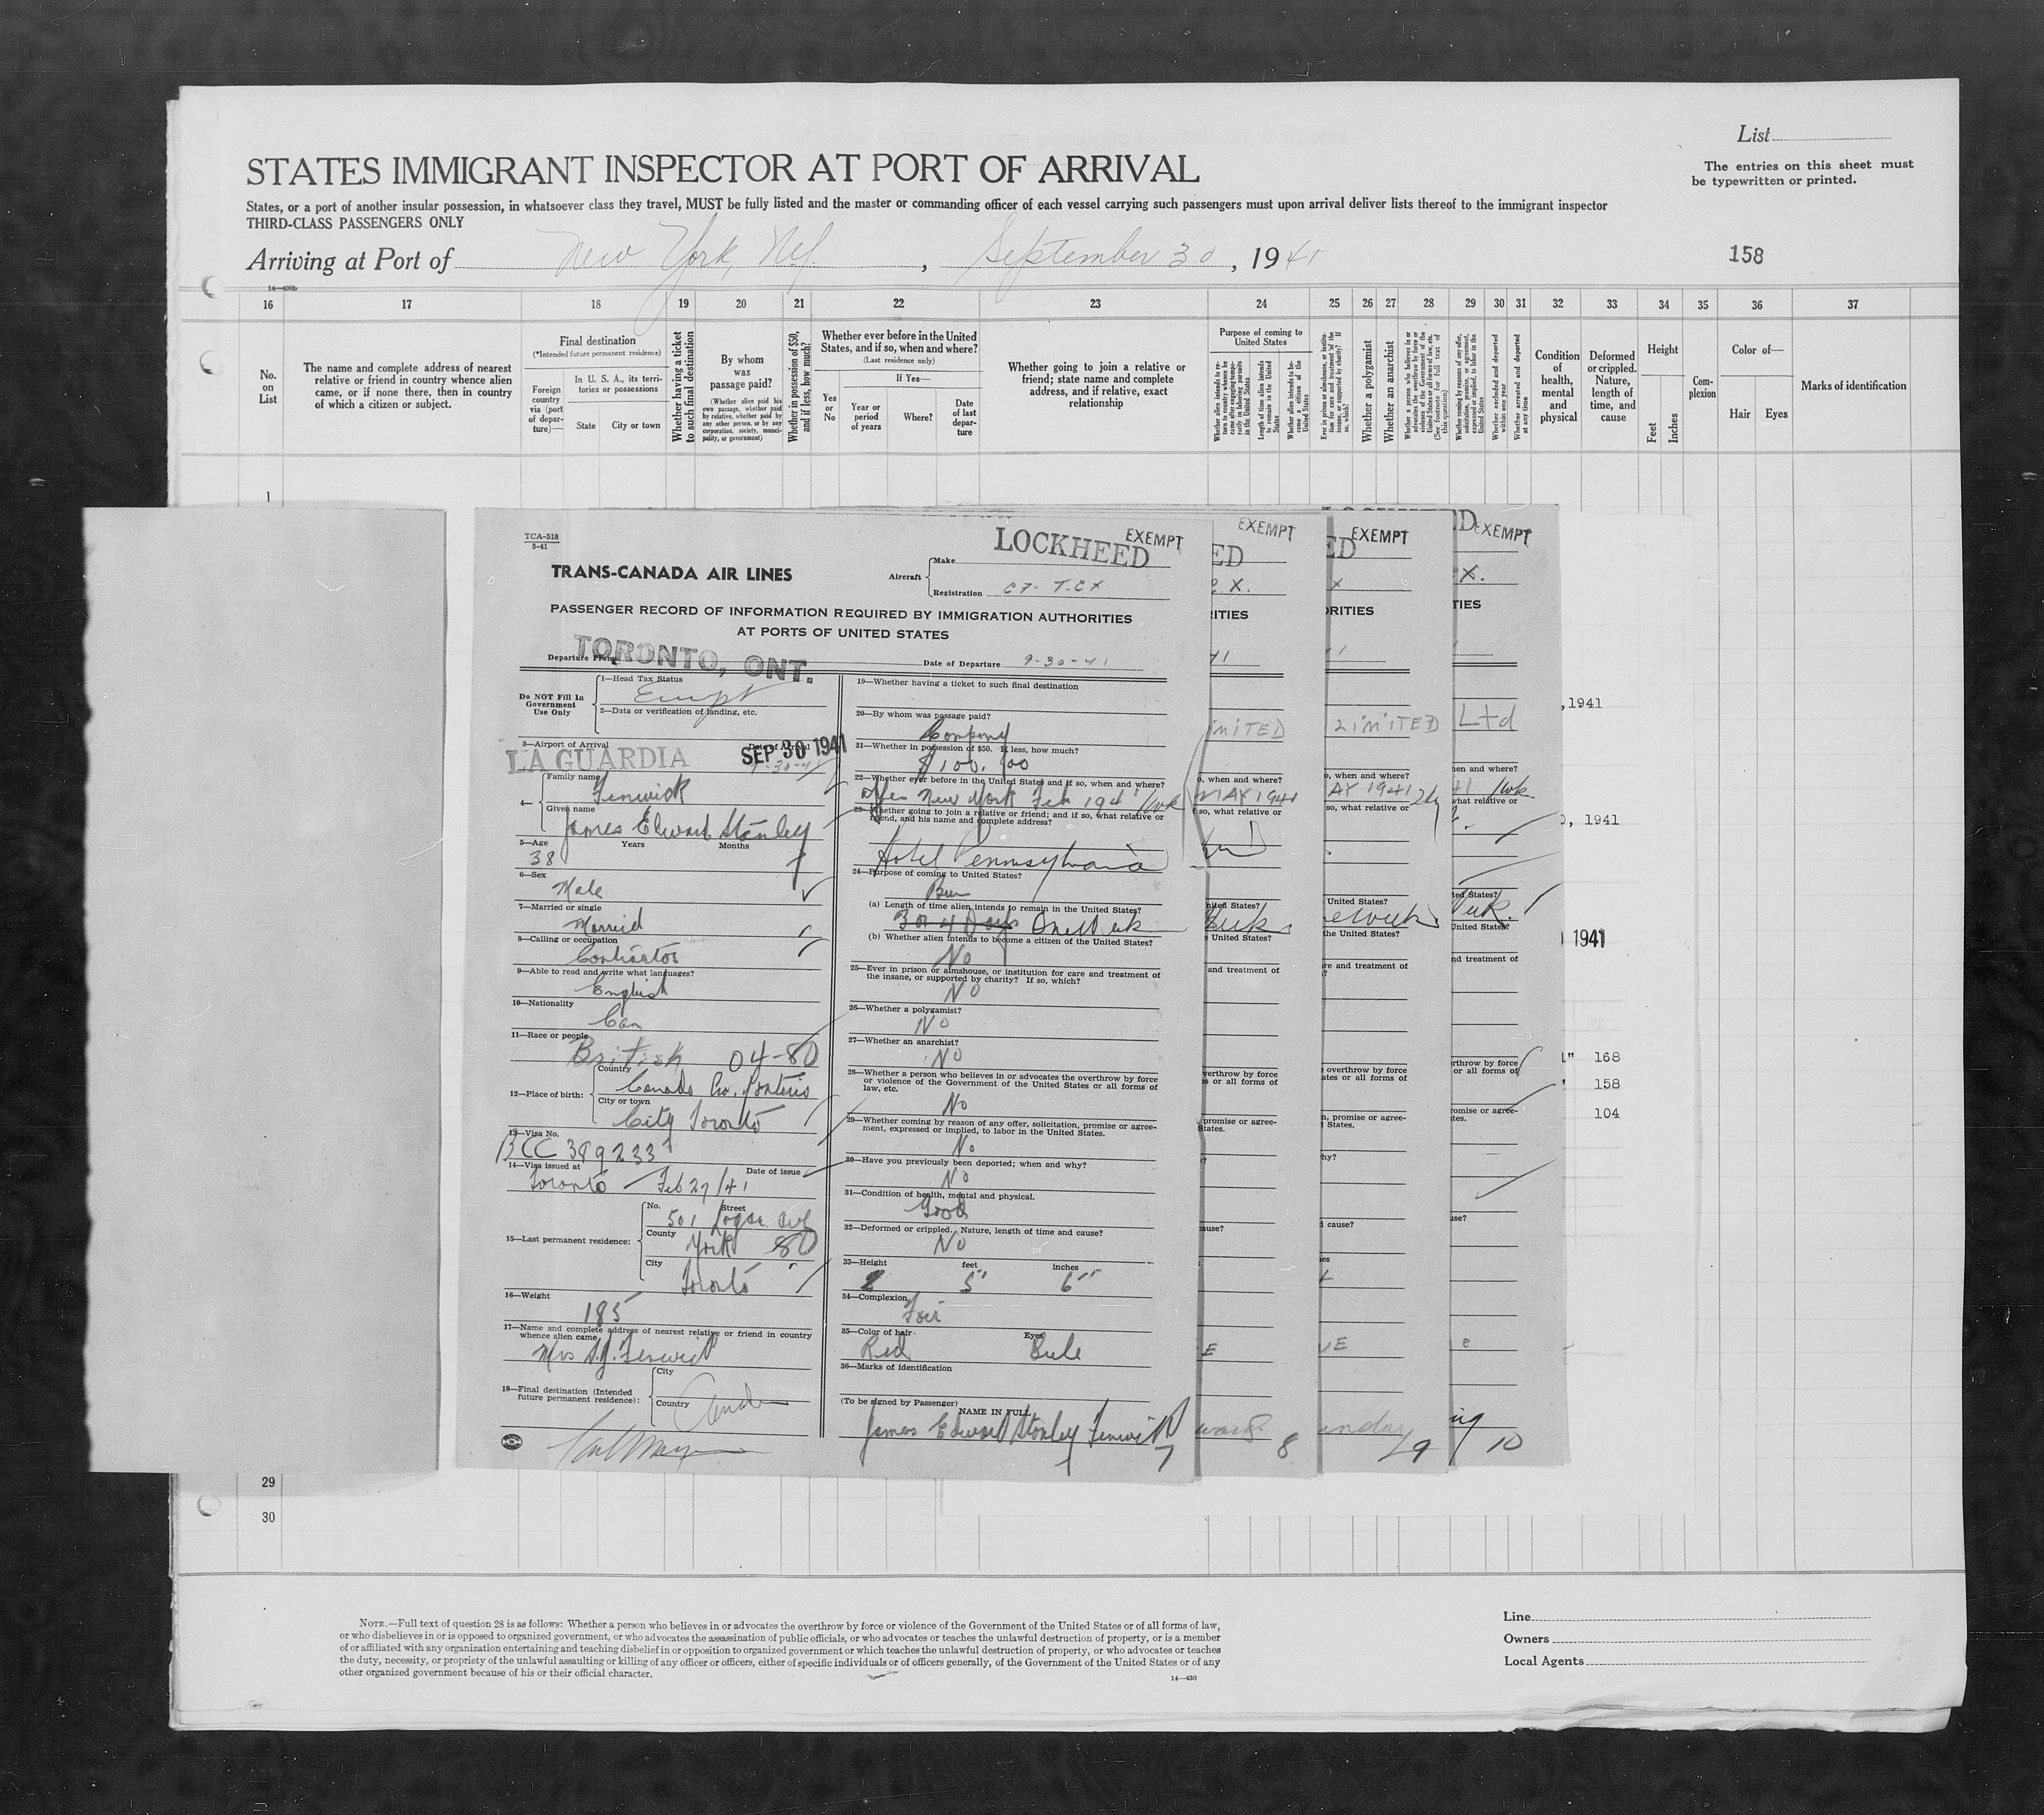 List
STATES IMMIGRANT INSPECTOR AT PORT OF ARRIVAL
The entries on this sheet must
be typewritten or printed.
States, or a port of another insular possession, in whatsoever class they travel, MUST be fully listed and the master or commanding officer of each vessel carrying such passengers must upon arrival deliver lists thereof to the immigrant inspector
THIRD-CLASS PASSENGERS ONLY
Arriving at Port of New York, N.Y. , September 30 , 1941
158
14—430b
16 17 18 19 20 21 22 23 24 25 26 27 28 29 30 31 32 33 34 35 36 37
No. on List
The name and complete address of nearest
relative or friend in country whence alien
came, or if none there, then in country
of which a citizen or subject.
Final destination
(*Intended future permanent residence)
Foreign country via (port of departure)—
In U. S. A., its territories or possessions
State City or town
Whether having a ticket to such final destination
By whom was passage paid?
(Whether alien paid his own passage, whether paid by relative, whether paid by any other person, or by any corporation, society, municipality, or government)
Whether in possession of $50, and if less, how much?
Whether ever before in the United
States, and if so, when and where?
(Last residence only)
Yes or No
If Yes—
Year or period of years
Where?
Date of last departure
Whether going to join a relative or
friend; state name and complete
address, and if relative, exact
relationship
Purpose of coming to United States
Length of time alien intends to remain in the United States
Whether alien intends to become a citizen of the United States
Whether a polygamist
Whether an anarchist
Whether excluded and deported within one year
Whether arrested and deported at any time
Condition of health, mental and physical
Deformed or crippled. Nature, length of time, and cause
Height
Feet Inches
Complexion
Color of—
Hair Eyes
Marks of identification
1
TCA-518
5-41
TRANS-CANADA AIR LINES
LOCKHEED EXEMPT
Aircraft
Make
Registration CF-TCX
PASSENGER RECORD OF INFORMATION REQUIRED BY IMMIGRATION AUTHORITIES
AT PORTS OF UNITED STATES
Departure From TORONTO, ONT.
Date of Departure 9-30-41
Do NOT Fill In
Government
Use Only
1—Head Tax Status
Exempt
2—Data or verification of landing, etc.
3—Airport of Arrival Date of Arrival
LA GUARDIA SEP 30 1941
9-30-41
4— Family name
Fenwick
Given name
James Edward Stanley
5—Age Years Months
38
6—Sex
Male
7—Married or single
Married
8—Calling or occupation
Contractor
9—Able to read and write what languages?
English
10—Nationality
Can
11—Race or people
British 04-80
12—Place of birth:
Country
Canada Ontario
City or town
City Toronto
13—Visa No.
BCC 389233
14—Visa issued at Date of issue
Toronto Feb 27/41
15—Last permanent residence:
No. Street
501 Logan Ave
County
York 80
City
Toronto
16—Weight
185
17—Name and complete address of nearest relative or friend in country
whence alien came
Mrs Fenwick
18—Final destination (Intended
future permanent residence):
City
Country
19—Whether having a ticket to such final destination
20—By whom was passage paid?
Company
21—Whether in possession of $50. If less, how much?
$100.00
22—Whether ever before in the United States and if so, when and where?
Yes New York Feb 1941 1wk
23—Whether going to join a relative or friend; and if so, what relative or
friend, and his name and complete address?
Hotel Pennsylvania
24—Purpose of coming to United States?
Bus
(a) Length of time alien intends to remain in the United States?
3 or 4 Days One Week
(b) Whether alien intends to become a citizen of the United States?
No
25—Ever in prison or almshouse, or institution for care and treatment of
the insane, or supported by charity? If so, which?
No
26—Whether a polygamist?
No
27—Whether an anarchist?
No
28—Whether a person who believes in or advocates the overthrow by force
or violence of the Government of the United States or all forms of
law, etc.
No
29—Whether coming by reason of any offer, solicitation, promise or agree-
ment, expressed or implied, to labor in the United States.
No
30—Have you previously been deported; when and why?
No
31—Condition of health, mental and physical.
Good
32—Deformed or crippled. Nature, length of time and cause?
No
33—Height feet inches
5' 6"
34—Complexion
Fair
35—Color of hair Eyes
Red Bule
36—Marks of identification
(To be signed by Passenger)
NAME IN FULL
James Edward Stanley Fenwick
7
EXEMPT
ED
C X.
RITIES
41
IMITED
o, when and where?
MAY 1941
f so, what relative or
nited States?
e United States?
and treatment of
verthrow by force
s or all forms of
promise or agree-
States.
ause?
E
8
EXEMPT
ED
X
ORITIES
LIMITED
o, when and where?
AY 1941
so, what relative or
United States?
the United States?
re and treatment of
overthrow by force
ates or all forms of
n, promise or agree-
d States.
hy?
d cause?
UE
9
D EXEMPT
X.
TIES
Ltd
hen and where?
41 1wk
what relative or
ted States?
United States?
nd treatment of
rthrow by force
or all forms of
omise or agree-
tes.
use?
e
10
,1941
, 1941
1941
168
158
104
29
30
NOTE.—Full text of question 28 is as follows: Whether a person who believes in or advocates the overthrow by force or violence of the Government of the United States or of all forms of law,
or who disbelieves in or is opposed to organized government, or who advocates the assassination of public officials, or who advocates or teaches the unlawful destruction of property, or is a member
of or affiliated with any organization entertaining and teaching disbelief in or opposition to organized government or which teaches the unlawful destruction of property, or who advocates or teaches
the duty, necessity, or propriety of the unlawful assaulting or killing of any officer or officers, either of specific individuals or of officers generally, of the Government of the United States or of any
other organized government because of his or their official character.
14—430
Line
Owners
Local Agents